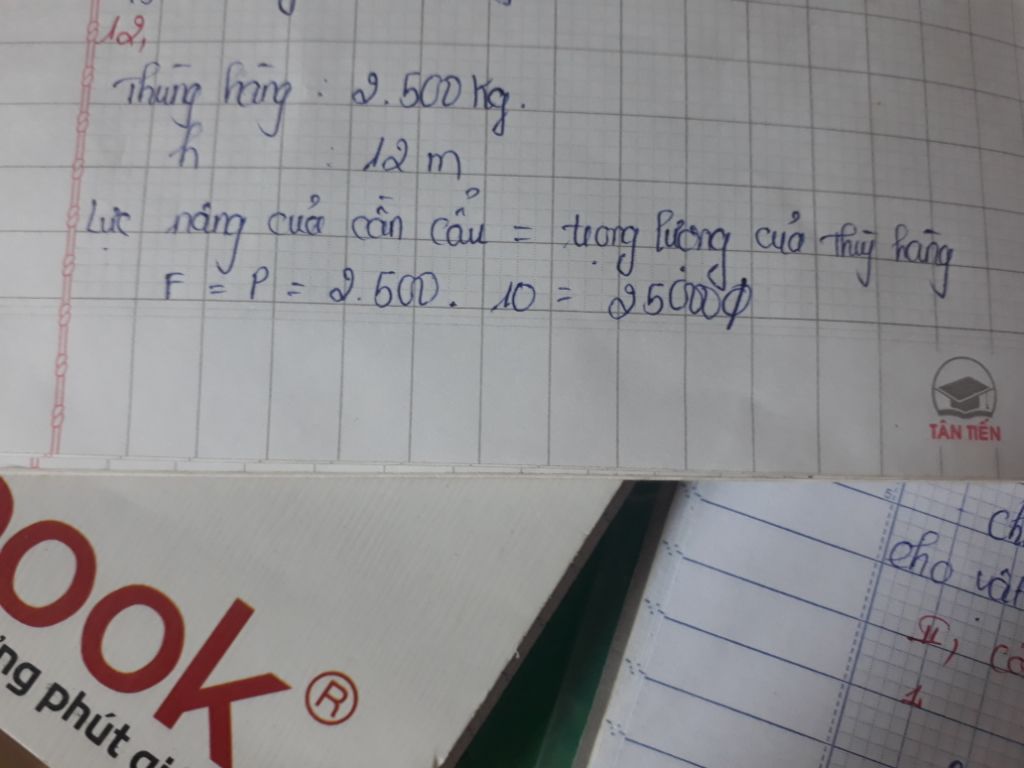 12,
Thùng hàng : 2.500 kg.
h : 12 m
Lực nâng cuả cần cẩu = trọng lượng cuả thùg hàng
F = P = 2.500. 10 = 25000
TÂN TIẾN
ook®
phút
ch
cho vật
II, cá
1,